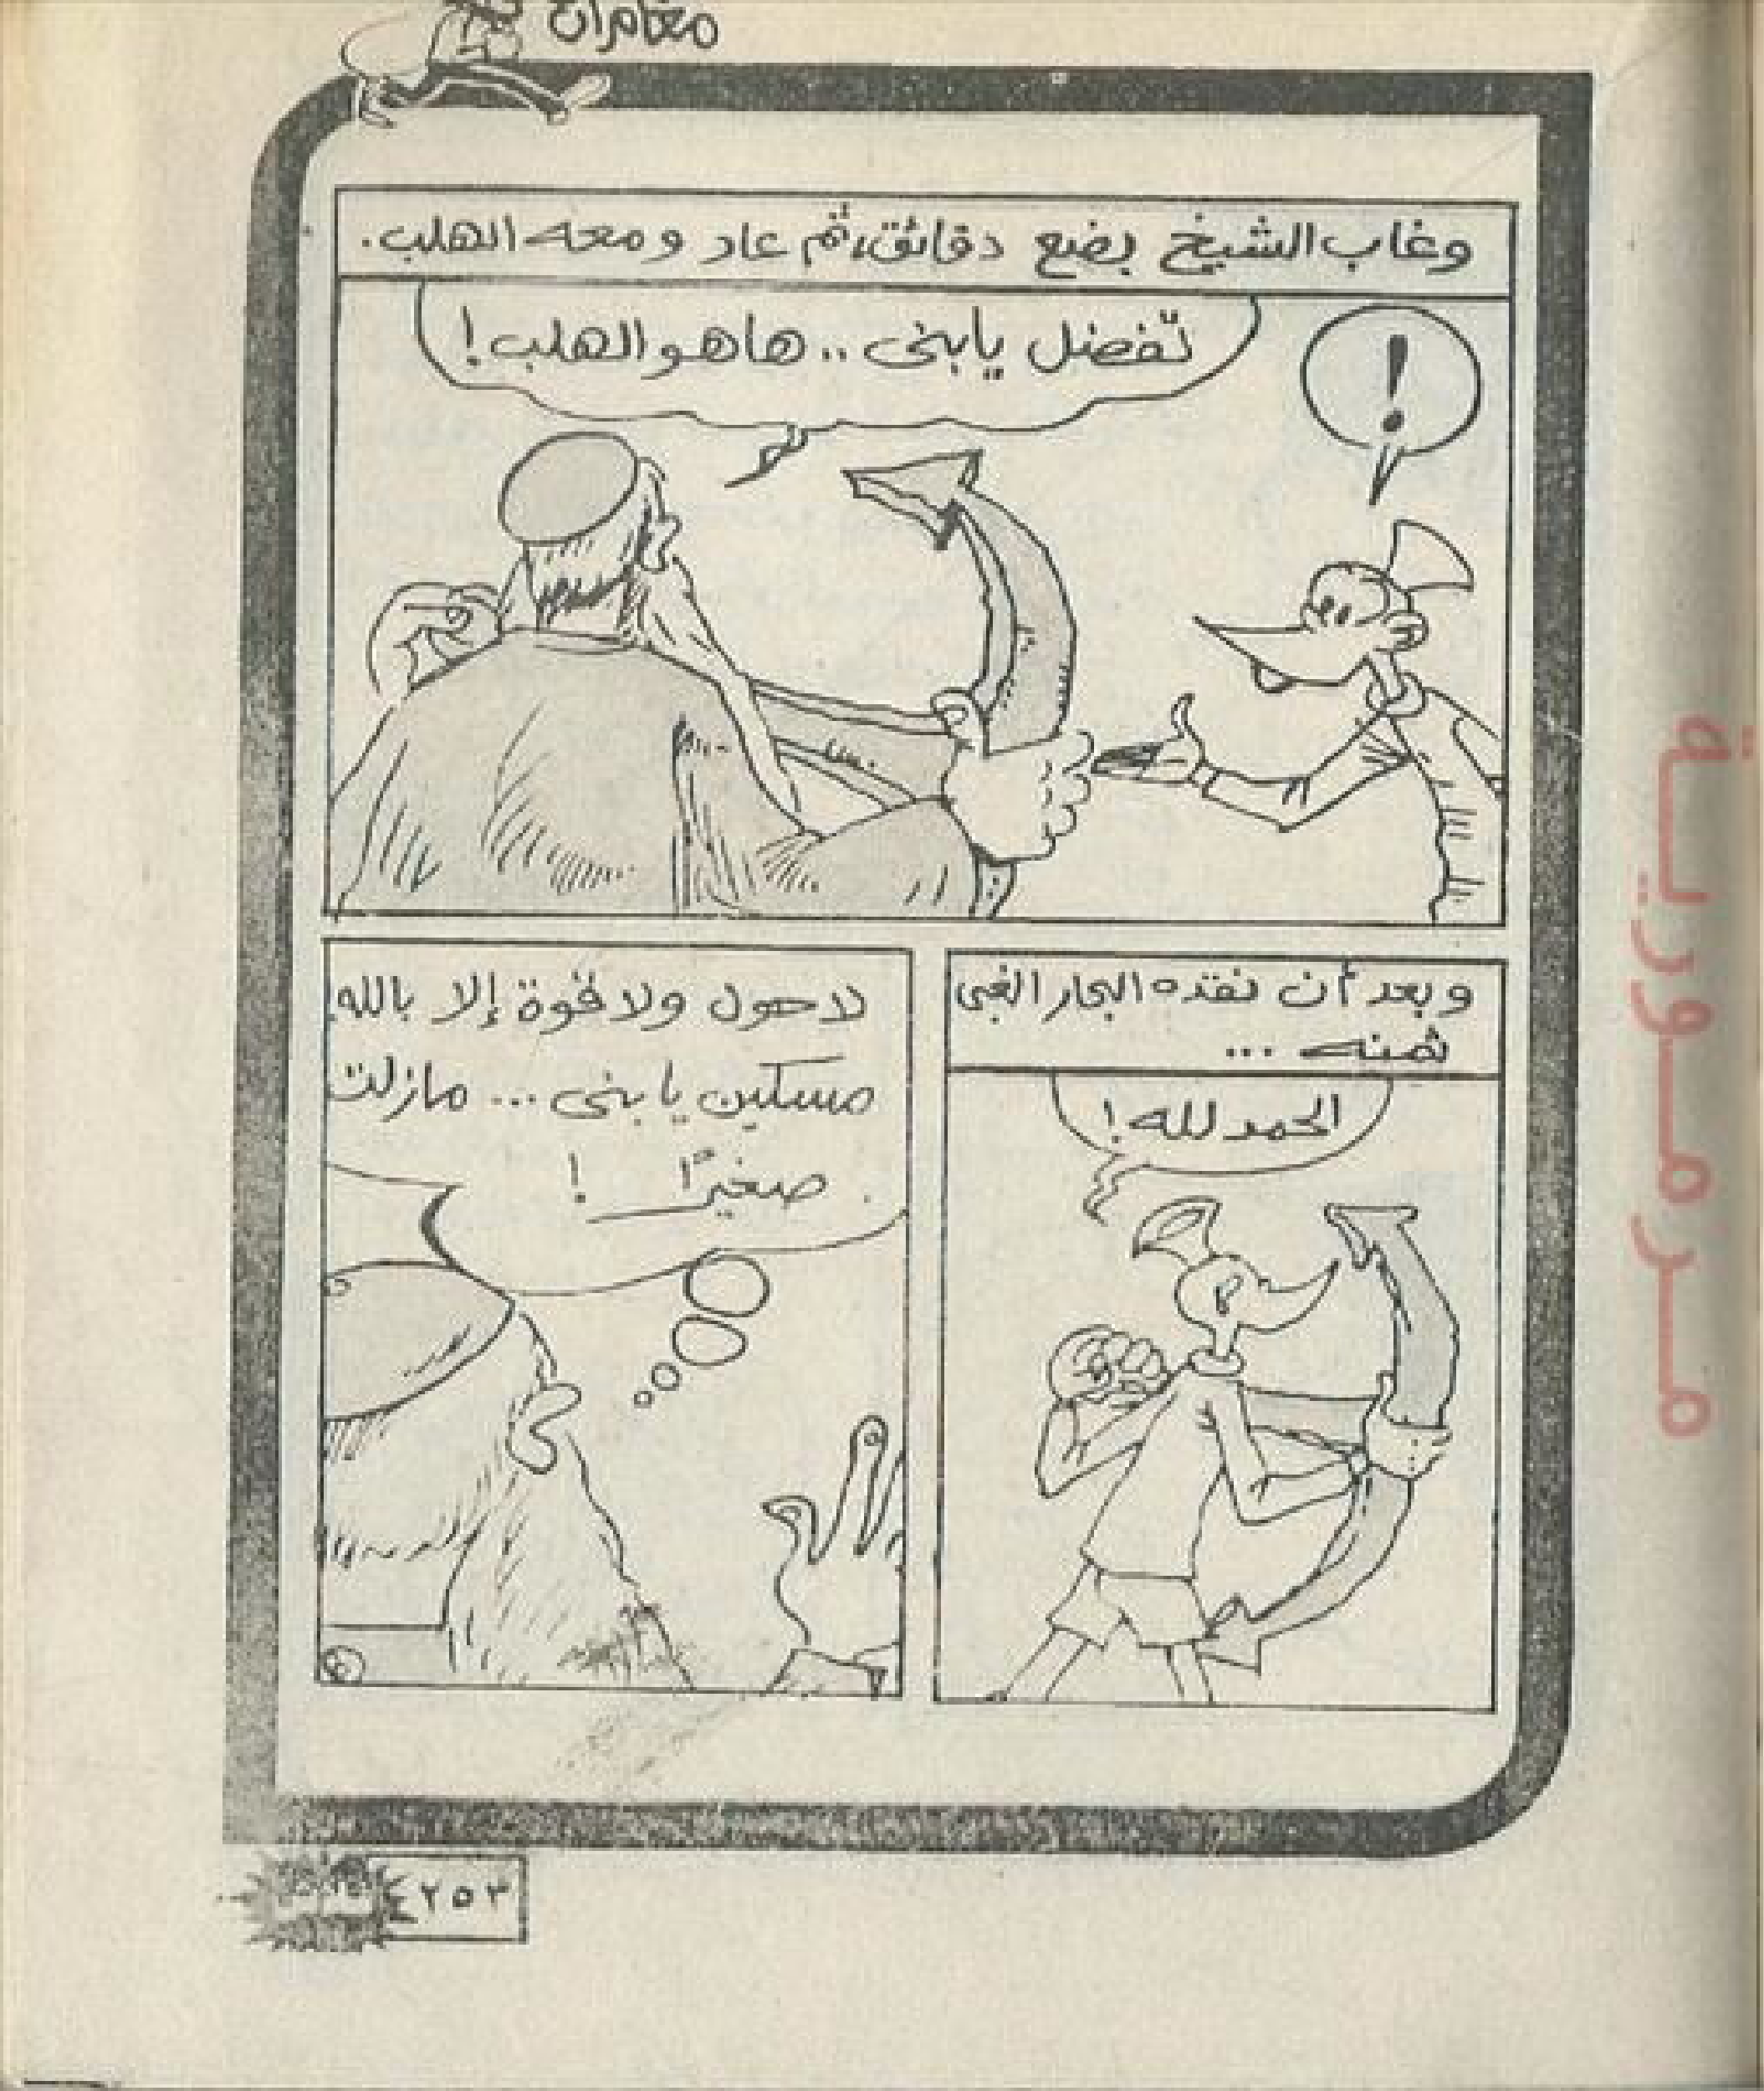 مغامرات
وغاب الشيخ بضع دقائق، ثم عاد ومعه الهلب.
!
تفضل يابنى .. هاهو الهلب!
وبعد أن نقده البحار الغبى
ثمنه ...
الحمد لله!
لا حول ولا قوة إلا بالله
مسكين يا بنى ... مازلت
صغيرًا !
٢٥٣
مرمورية